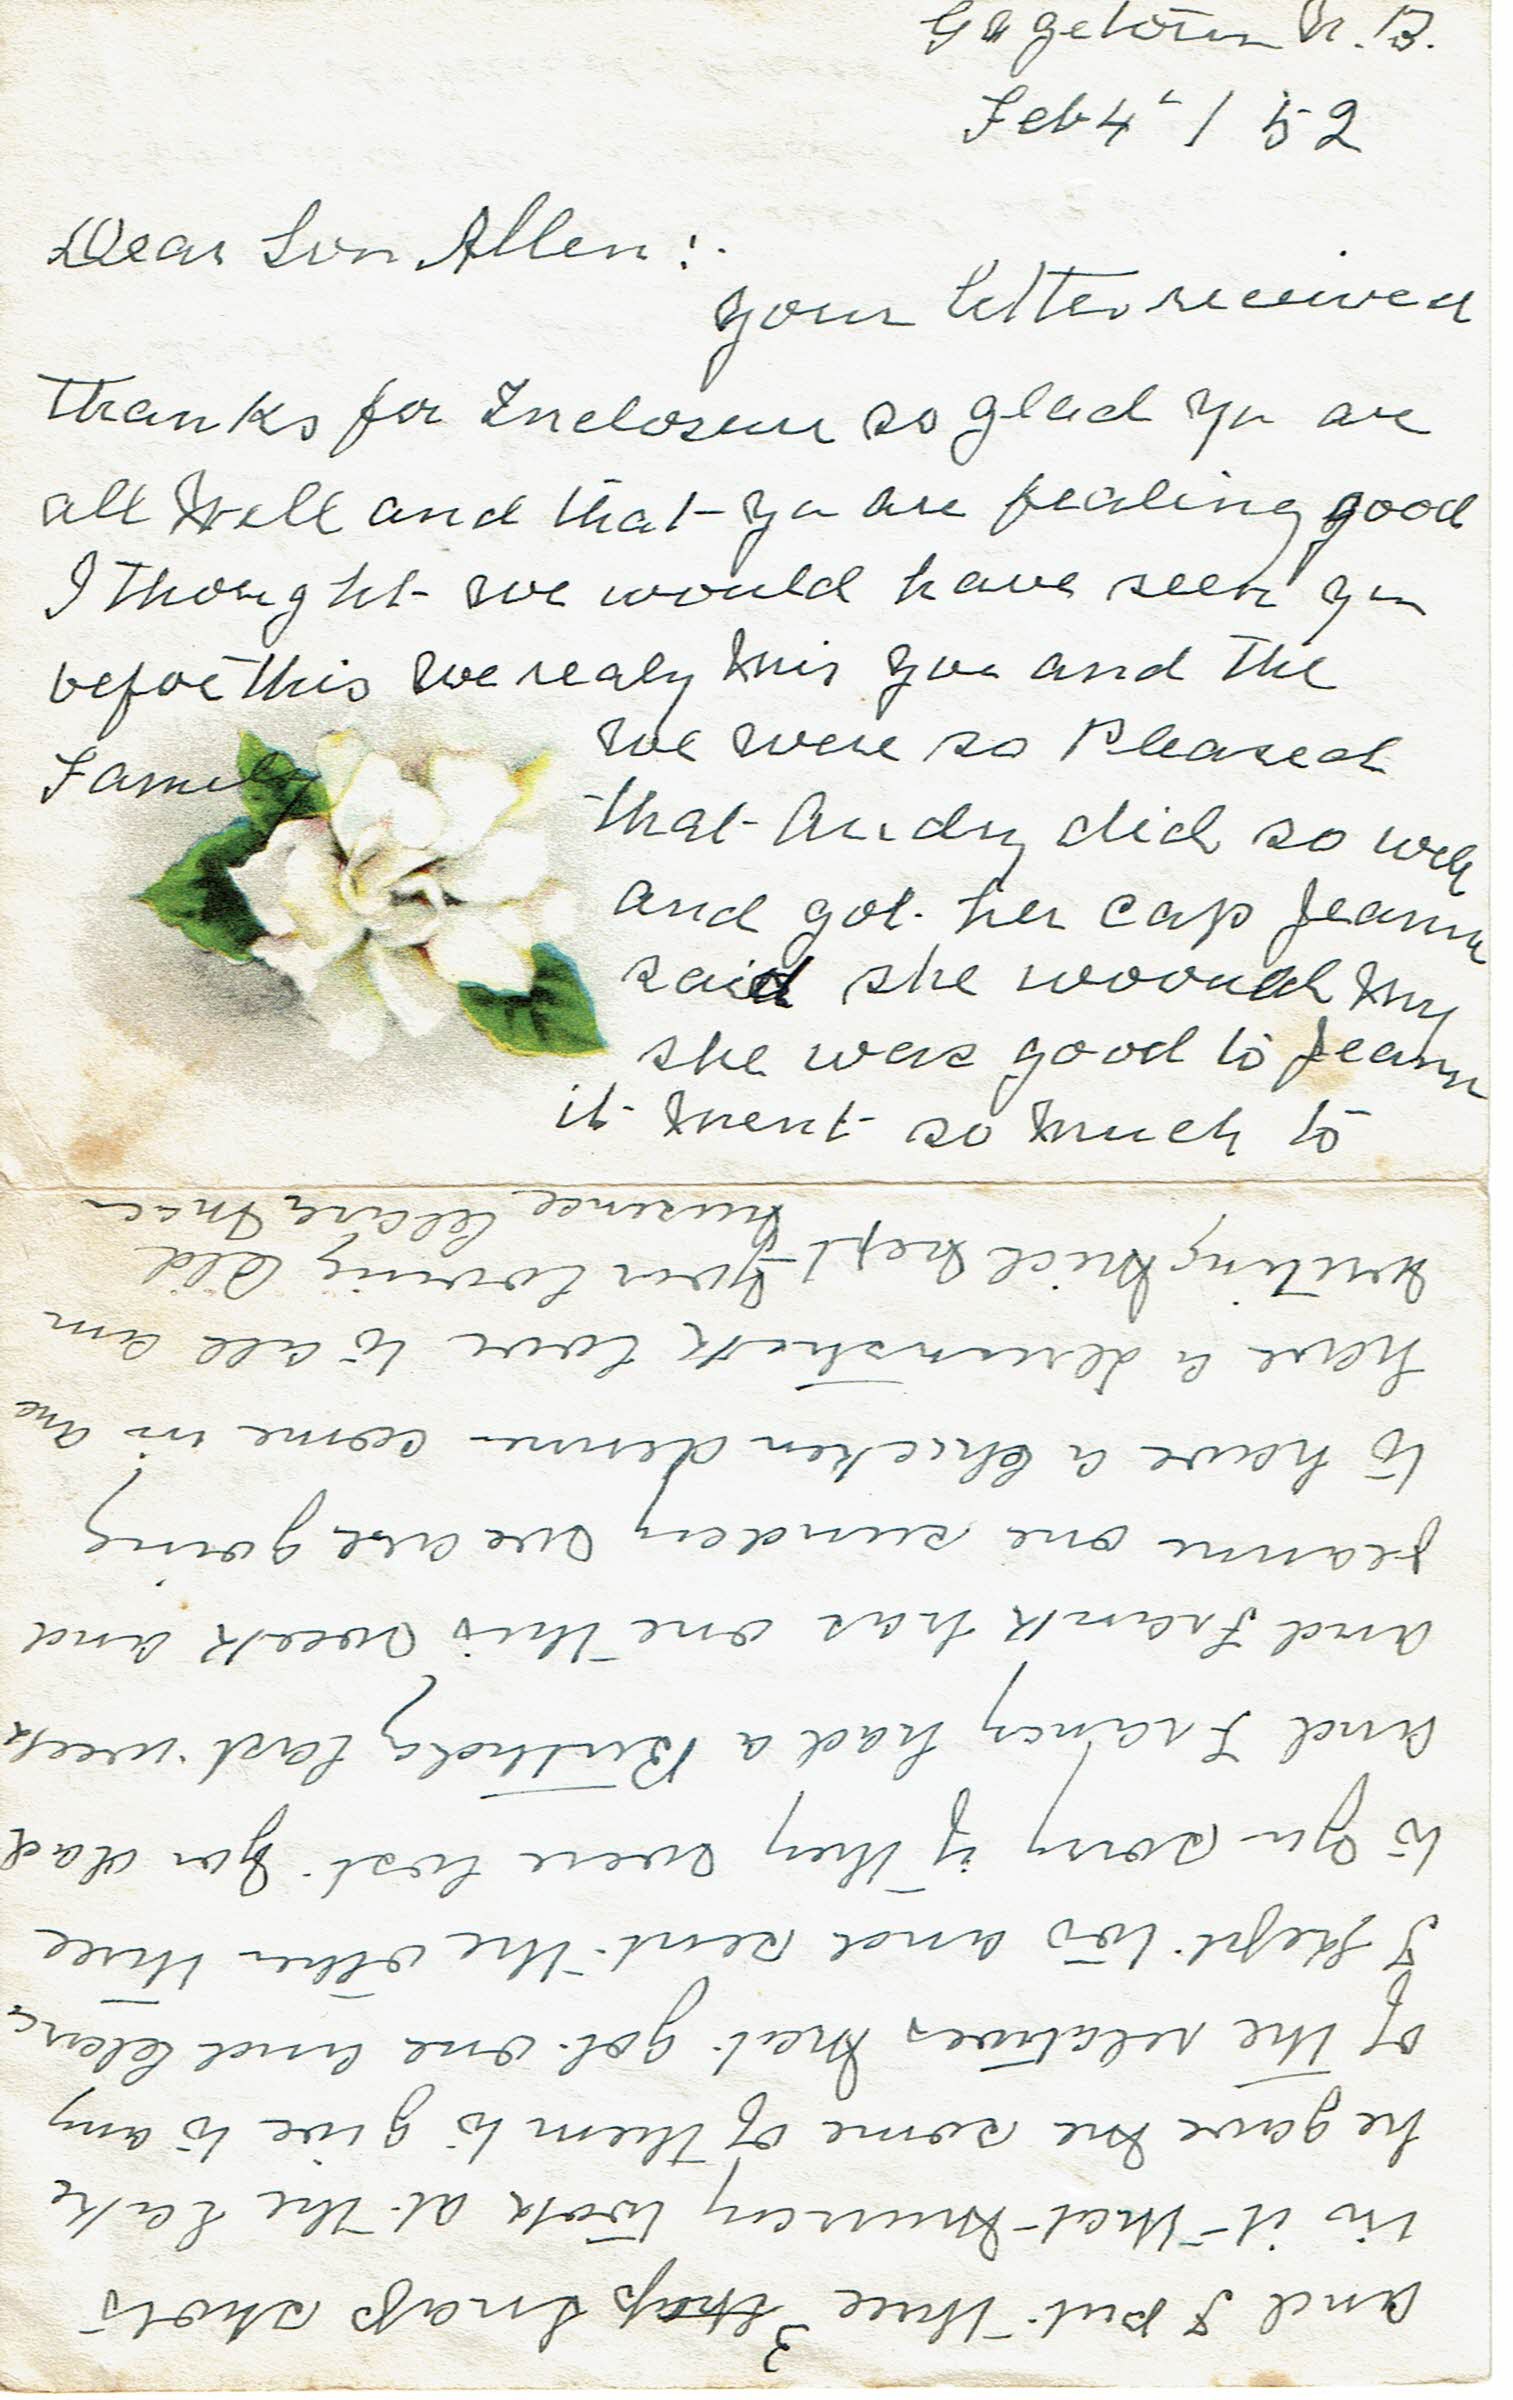 Gagetown N.B.
Feb 4, / 52
Dear Son Allen :.
your letter received
thanks for Incloseur so glad yu are
all well and that yu are fealing good
I thought we would have seen yu
before this we realy mis you and the
Family
we were so Pleased
that Audry did so well
and got her cap Jeanne
said she woould my
she was good to Jeanne
it ment so much to
and I put three 3 snap shots
in it that Murray took at the Lake
he gave me some of them to give to any
of the relatives that got one and Clara
I kept to and sent the other three
to yu sorry if they were lost your dad
and Francy had a Birthday last week
and Frank has one this week and
Jeanne one sunday we are going
to have a chicken dinner come in and
have a drumstick love to all am
writing kept your loving Old
nusence Clara Mac